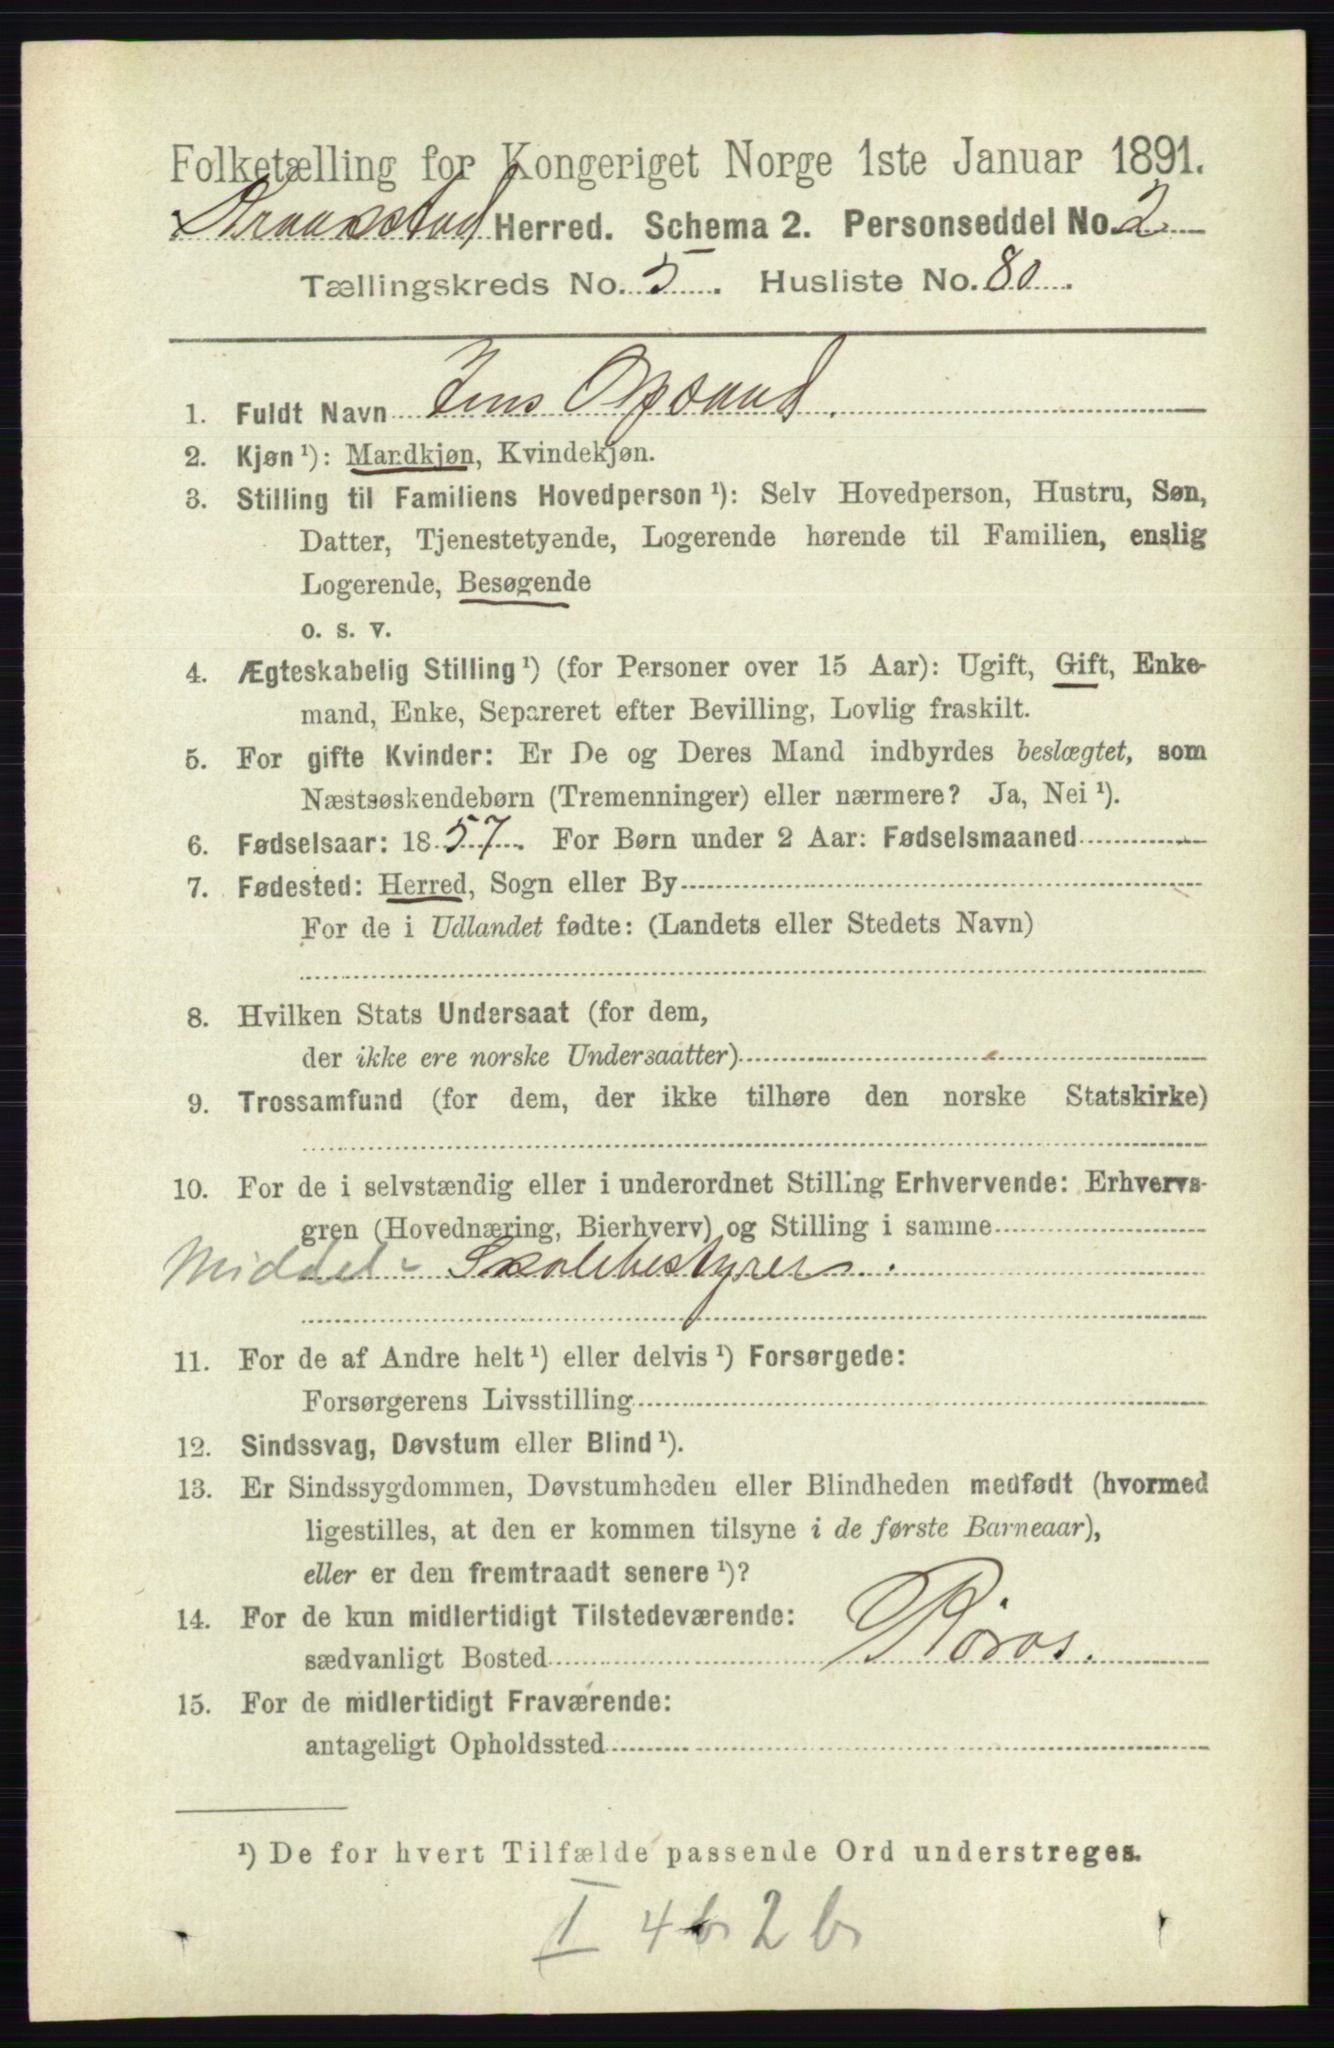 Folketælling for Kongeriget Norge 1ste Januar 1891.
Kraakstad Herred. Schema 2. Personseddel No. 2
Tællingskreds No. 5. Husliste No. 80.
1. Fuldt Navn Jens Opsand.
2. Kjøn ¹): Mandkjøn, Kvindekjøn.
3. Stilling til Familiens Hovedperson ¹): Selv Hovedperson, Hustru, Søn,
Datter, Tjenestetyende, Logerende hørende til Familien, enslig
Logerende, Besøgende
o. s. v.
4. Ægteskabelig Stilling ¹) (for Personer over 15 Aar): Ugift, Gift, Enke-
mand, Enke, Separeret efter Bevilling, Lovlig fraskilt.
5. For gifte Kvinder: Er De og Deres Mand indbyrdes beslægtet, som
Næstsøskendebørn (Tremenninger) eller nærmere? Ja, Nei ¹).
6. Fødselsaar: 1857. For Børn under 2 Aar: Fødselsmaaned
7. Fødested: Herred, Sogn eller By
For de i Udlandet fødte: (Landets eller Stedets Navn)
8. Hvilken Stats Undersaat (for dem,
der ikke ere norske Undersaatter)
9. Trossamfund (for dem, der ikke tilhøre den norske Statskirke)
10. For de i selvstændig eller i underordnet Stilling Erhvervende: Erhvervs-
gren (Hovednæring, Bierhverv) og Stilling i samme
Middel- Skolebestyrer.
11. For de af Andre helt ¹) eller delvis ¹) Forsørgede:
Forsørgerens Livsstilling
12. Sindssvag, Døvstum eller Blind ¹).
13. Er Sindssygdommen, Døvstumheden eller Blindheden medfødt (hvormed
ligestilles, at den er kommen tilsyne i de første Barneaar),
eller er den fremtraadt senere ¹)?
14. For de kun midlertidigt Tilstedeværende:
sædvanligt Bosted Röros.
15. For de midlertidigt Fraværende:
antageligt Opholdssted
¹) De for hvert Tilfælde passende Ord understreges.
I 4b 2b